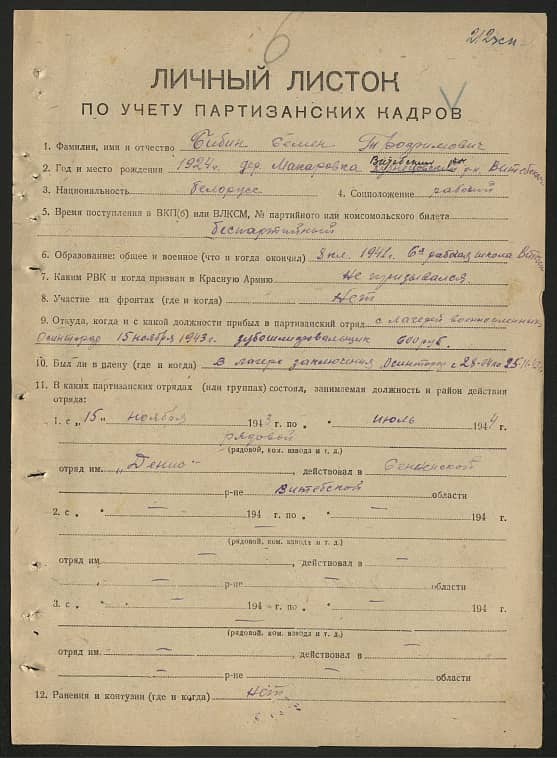 6
ЛИЧНЫЙ ЛИСТОК
ПО УЧЕТУ ПАРТИЗАНСКИХ КАДРОВ
1. Фамилия, имя и отчество Бибик Семен
2. Год и место рождения 1924 г. дер. Макаровка Витебский
3. Национальность белорусс 4. Соцположение рабочий
5. Время поступления в ВКП(б) или ВЛКСМ, № партийного или комсомольского билета
беспартийный
6. Образование: общее и военное (что и когда окончил) 1941 г. рабочая школа
7. Каким РВК и когда призван в Красную Армию Не призывался.
8. Участие на фронтах (где и когда) Нет
9. Откуда, когда и с какой должности прибыл в партизанский отряд с лагерей военнопленных
15 ноября 1943 г. 600 руб.
10. Был ли в плену (где и когда) В лагере заключения
11. В каких партизанских отрядах (или группах) состоял, занимаемая должность и район действия
отряда:
1. с „15" ноября 1943 г. по „ " июль 1944 г.
рядовой
(рядовой, ком. взвода и т. д.)
отряд им. „Дениса" , действовал в Сенненской
р-не Витебской области
2. с „ " — 194 г. по „ " — 194 г.
(рядовой, ком. взвода и т. д.)
отряд им. — , действовал в —
— р-не — области
3. с „ " — 194 г. по „ " — 194 г.
(рядовой, ком. взвода и т. д.)
отряд им. — , действовал в —
— р-не — области
12. Ранения и контузии (где и когда) Нет.